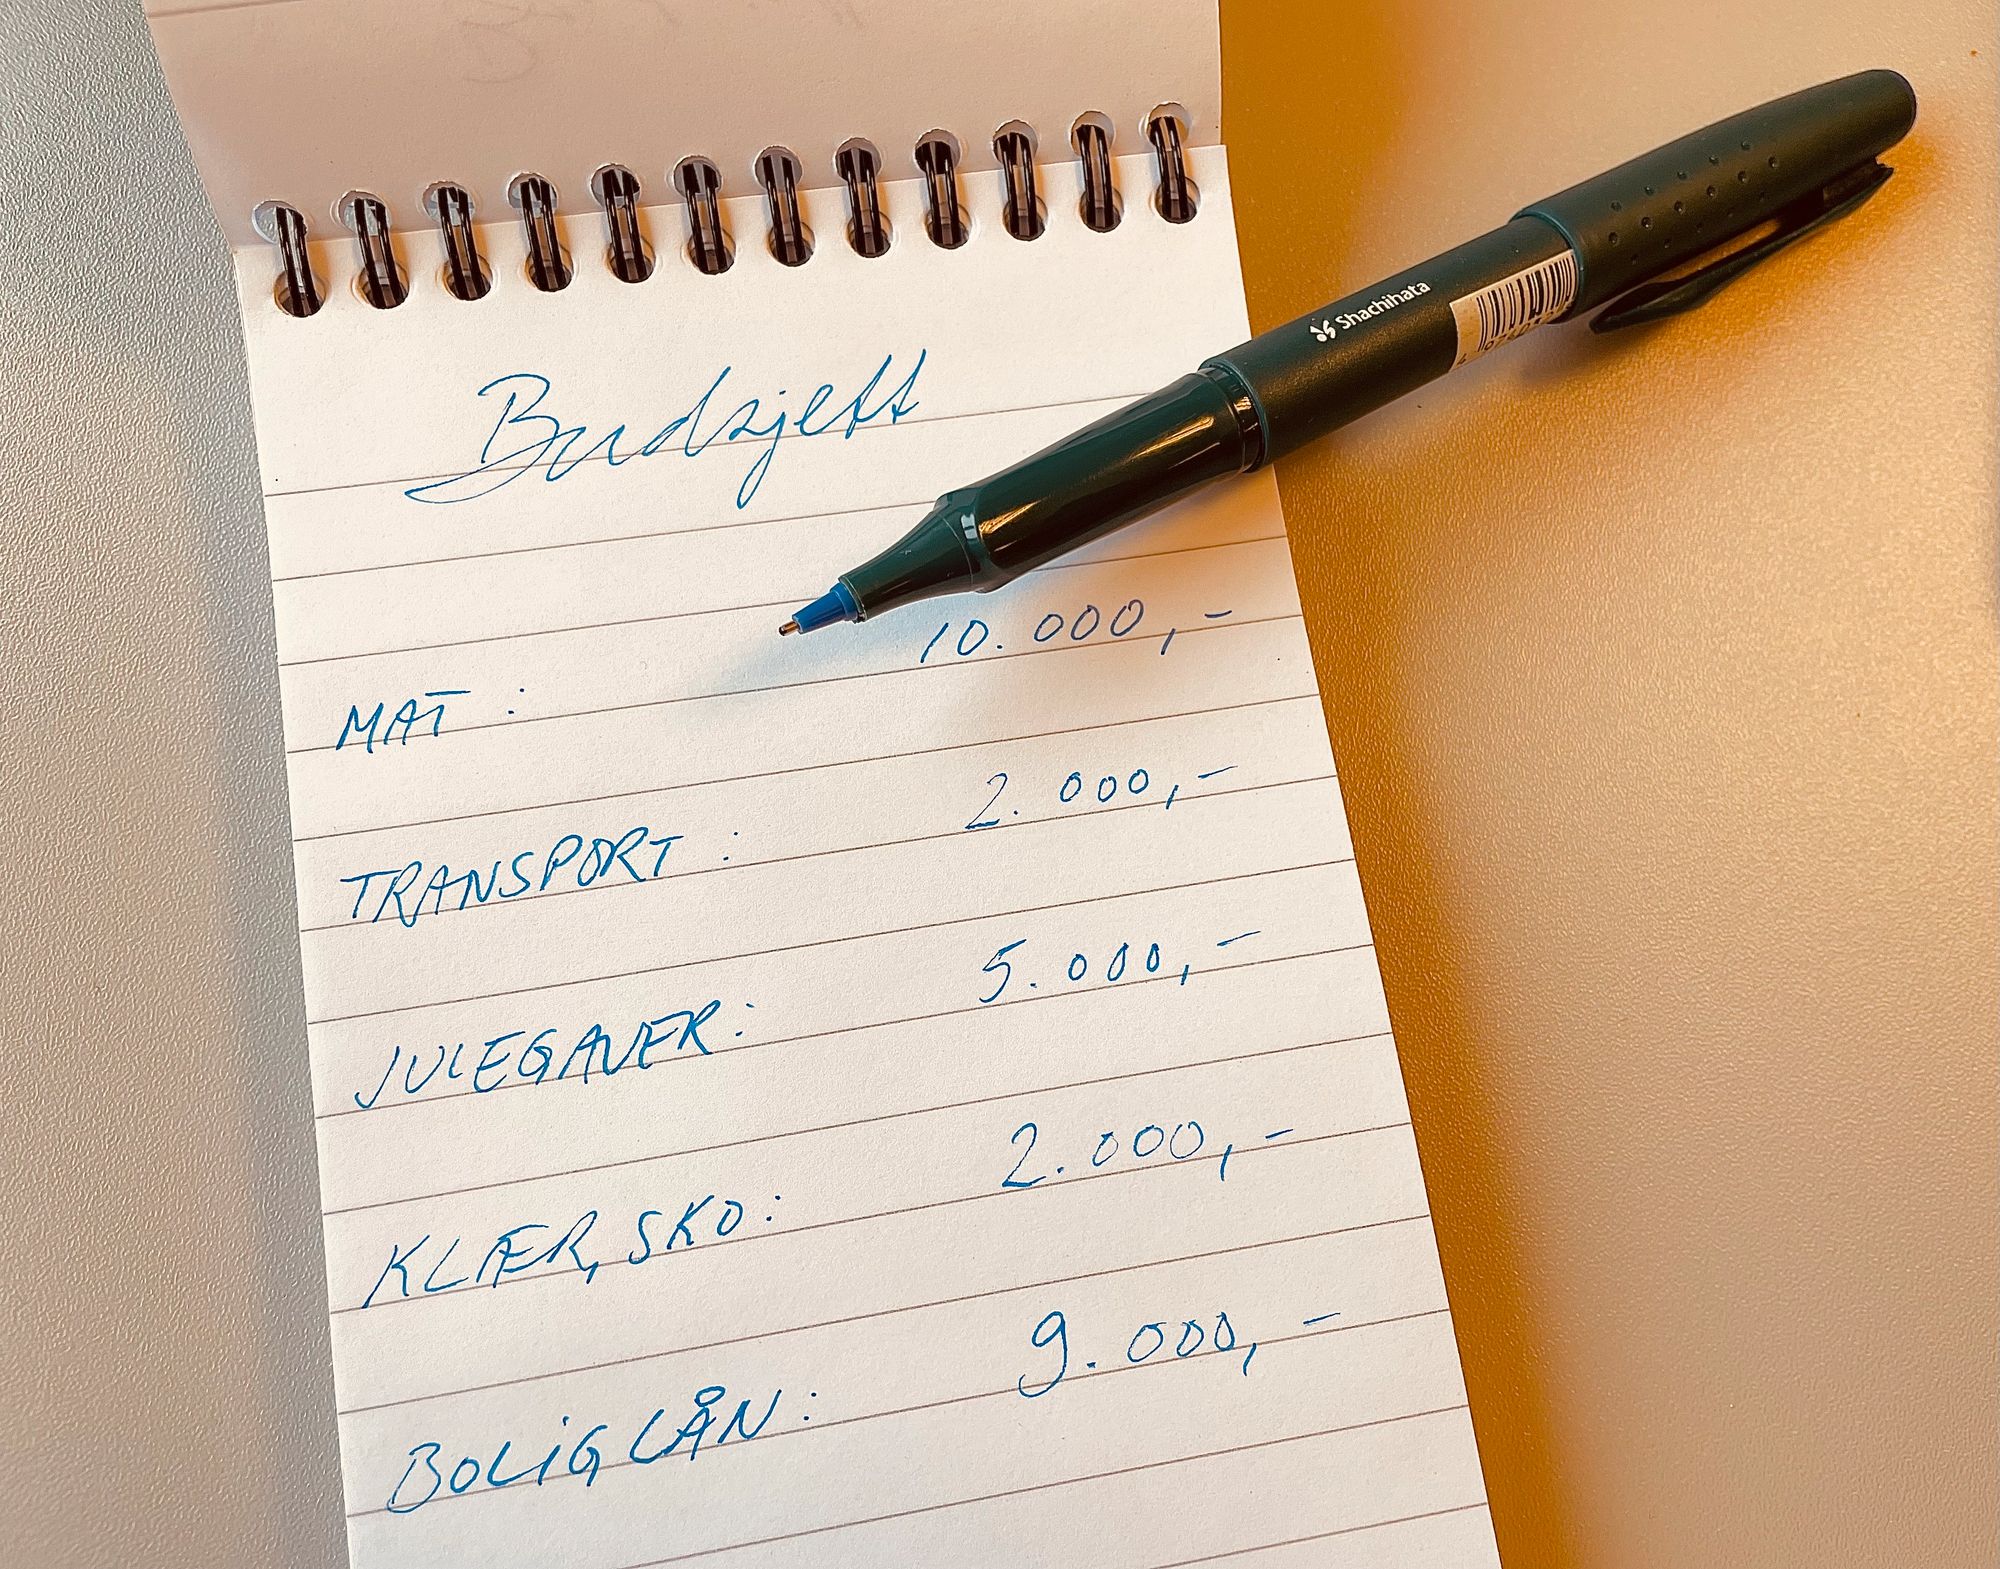 Budsjett
MAT : 10.000,-
TRANSPORT : 2.000,-
JULEGAVER : 5.000,-
KLÆR, SKO : 2.000,-
BOLIGLÅN : 9.000,-
Shachihata